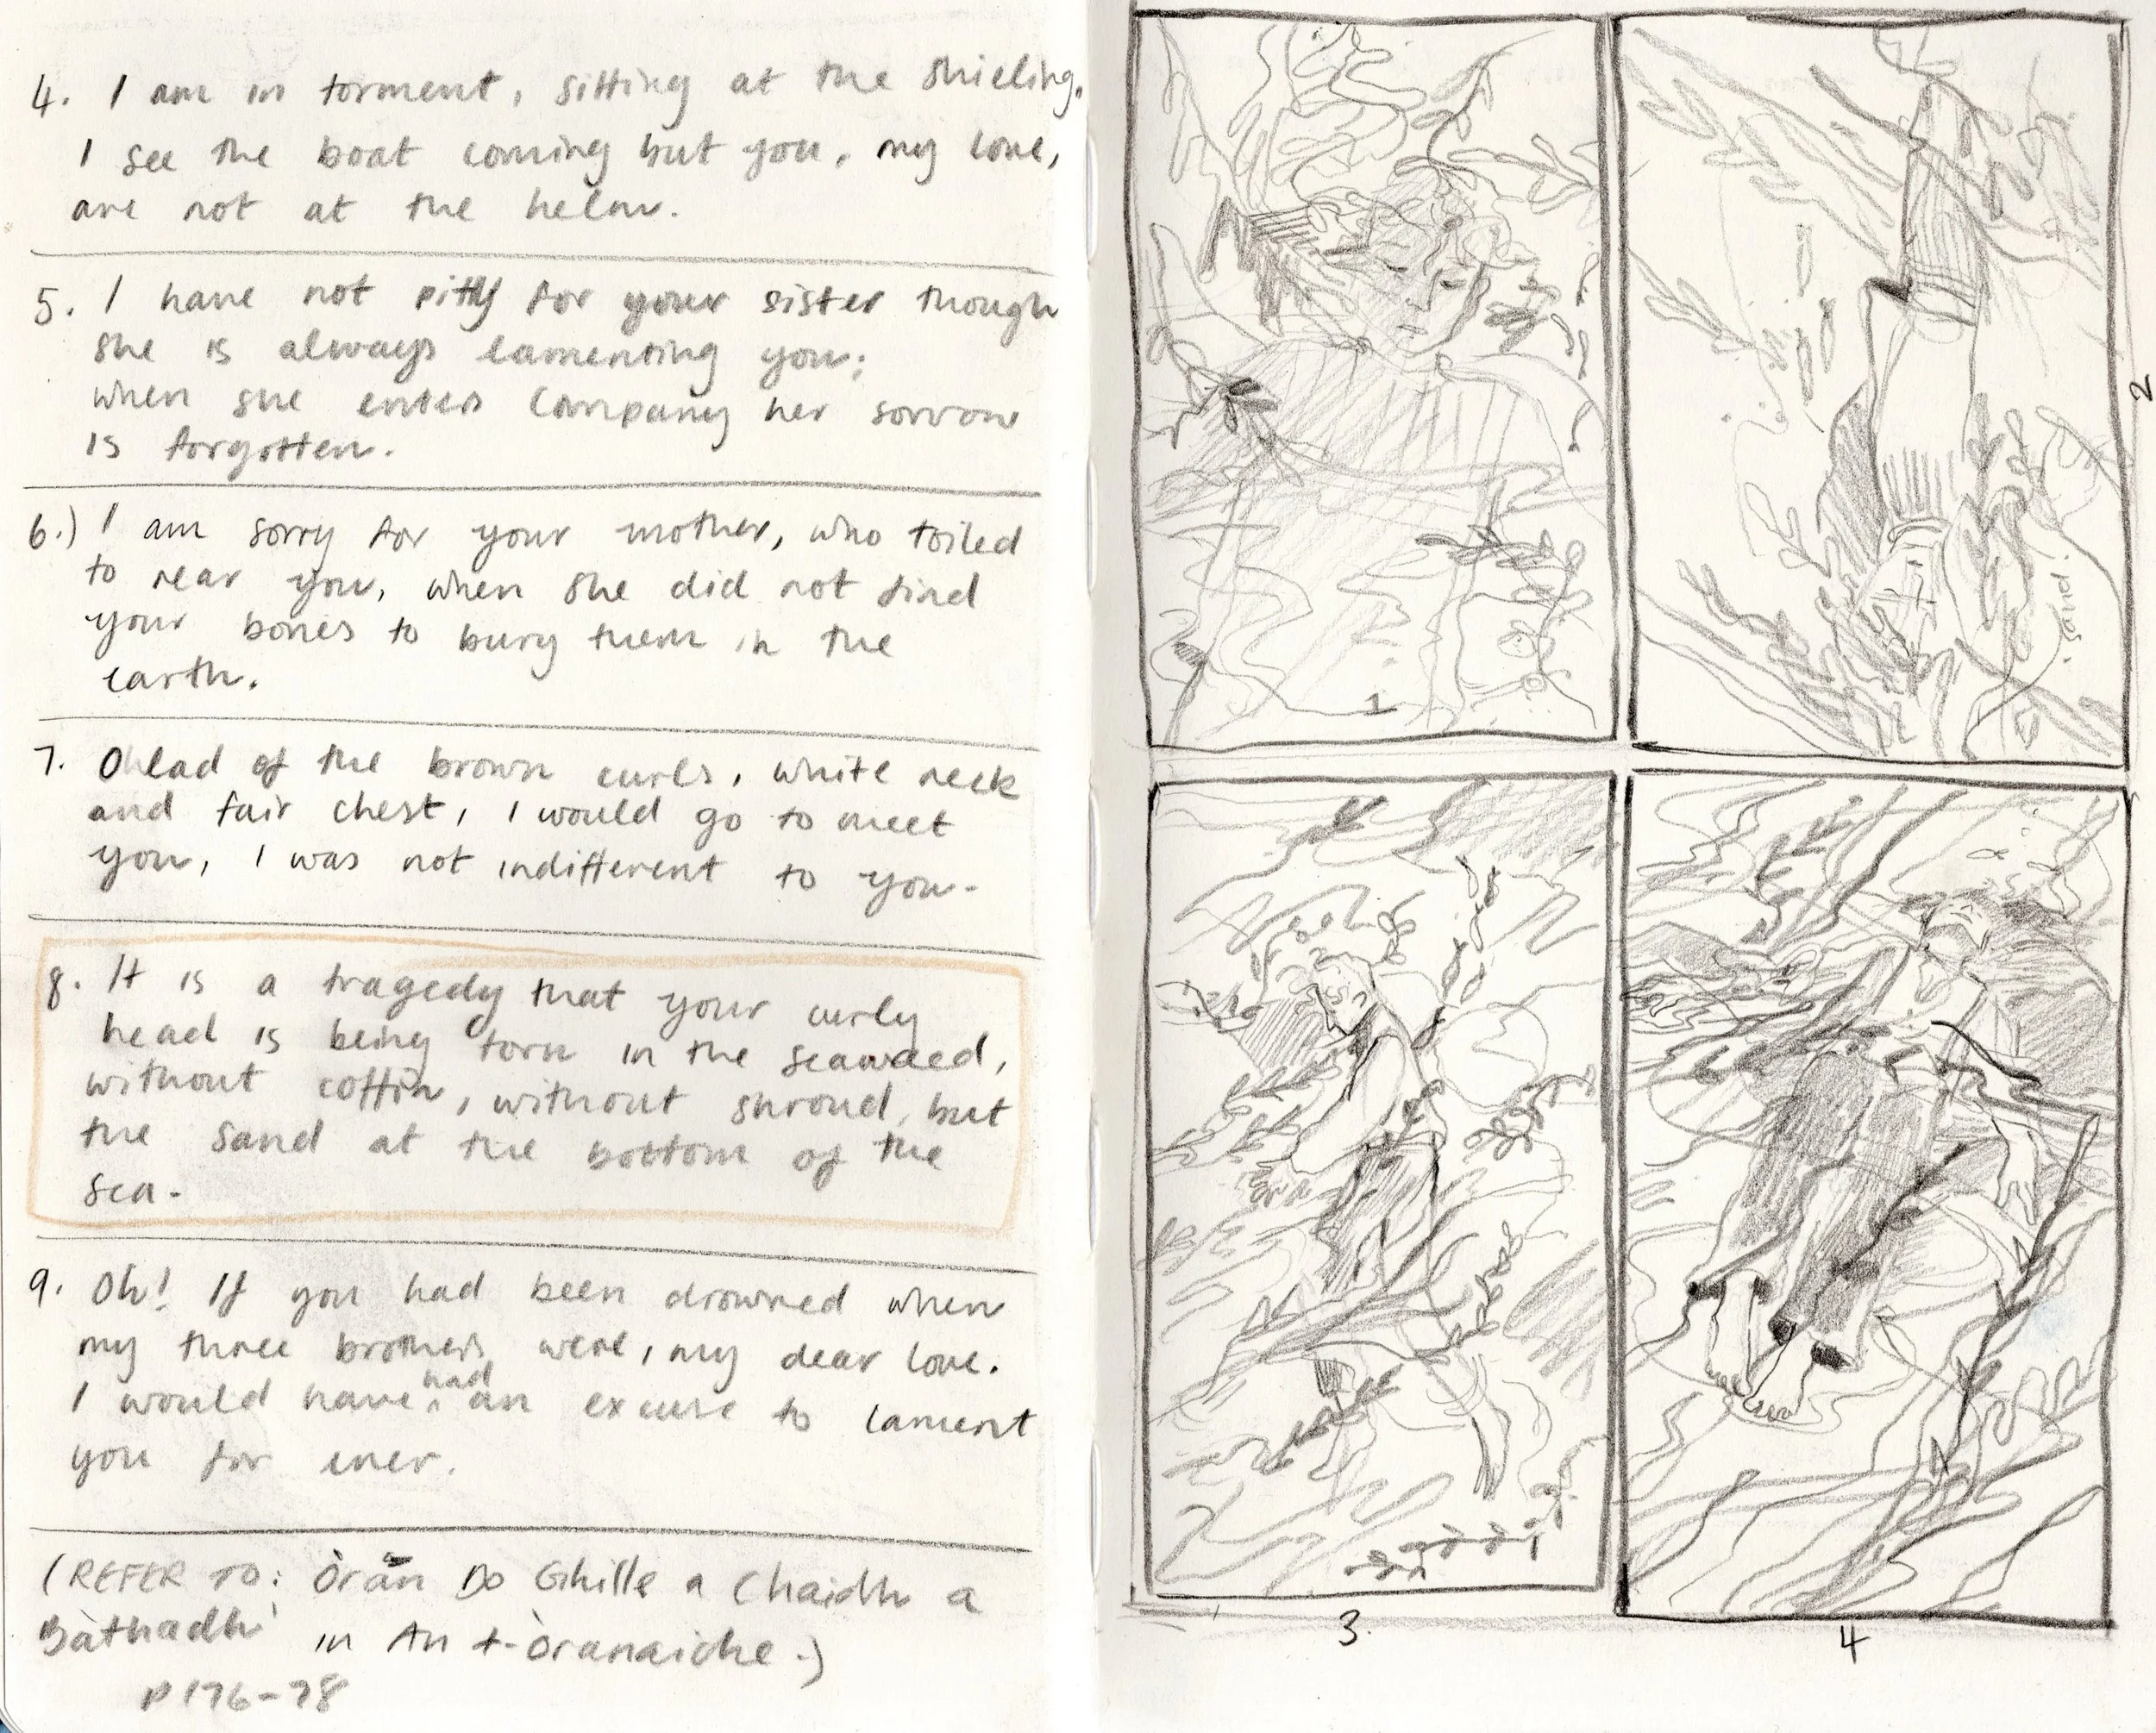 4. I am in torment, sitting at the shieling.
I see the boat coming but you, my love,
are not at the helm.
5. I have not pity for your sister though
she is always lamenting you;
when she enters company her sorrow
is forgotten.
6.) I am sorry for your mother, who toiled
to rear you, when she did not find
your bones to bury them in the
earth.
7. O lad of the brown curls, white neck
and fair chest, I would go to meet
you, I was not indifferent to you.
8. It is a tragedy that your curly
head is being torn in the seaweed,
without coffin, without shroud, but
the sand at the bottom of the
sea.
9. Oh! If you had been drowned when
my three brothers were, my dear love.
I would have had an excuse to lament
you for ever.
(REFER TO: Òran Do Ghille a Chaidh a
Bàthadh' in An t-Òranaiche.)
P176-78
1
2
sand.
3.
4